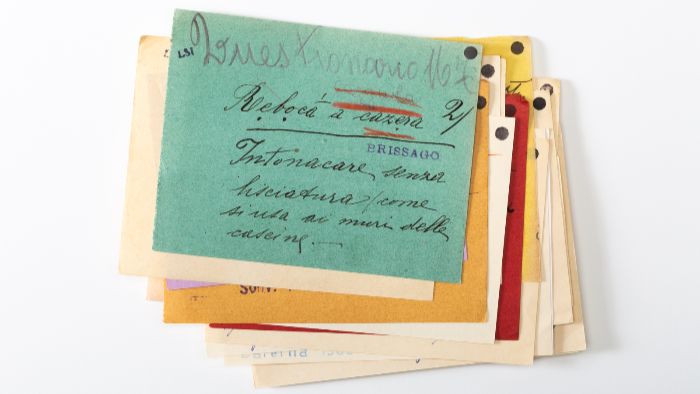 LSI Questionario 167
Rebocá a cazèra 2)
BRISSAGO
Intonacare, senza
lisciatura (come
si usa ai muri delle
cascine.
Sonv.